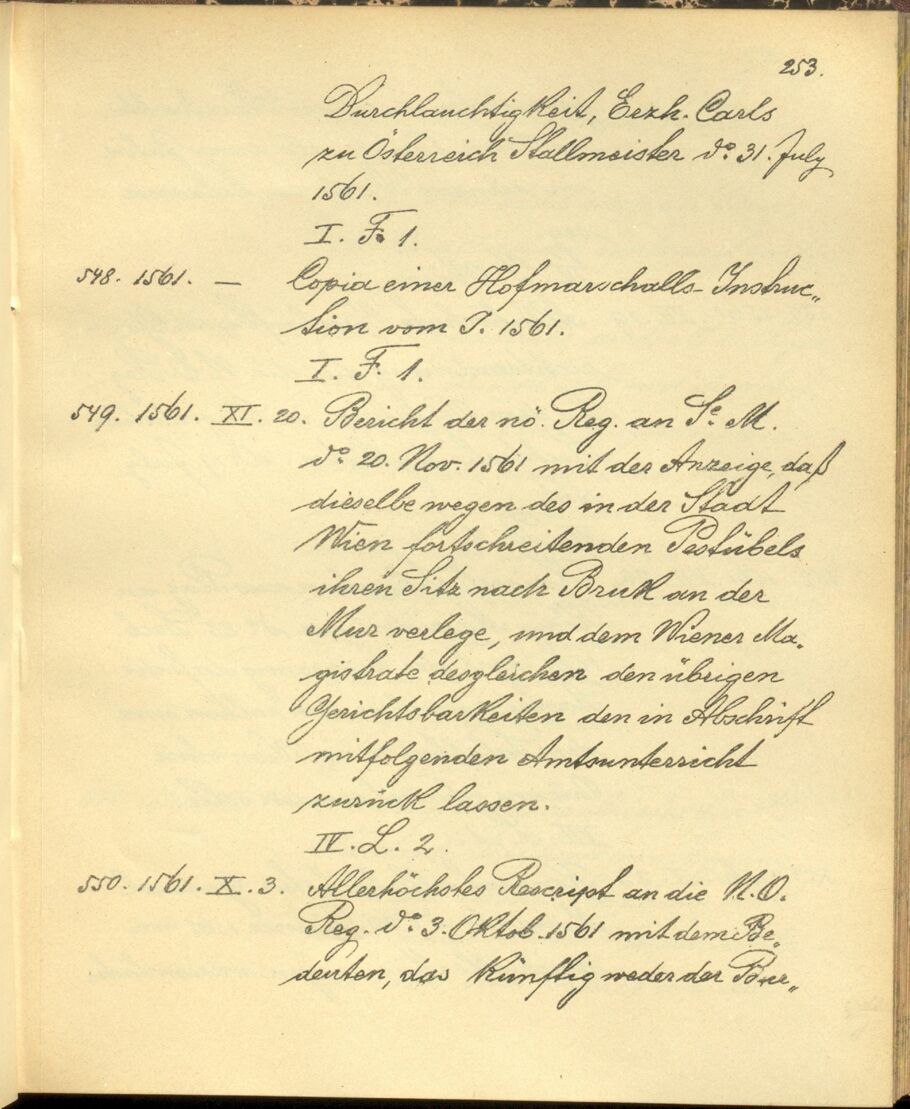 253.
Durchlauchtigkeit, Erzh. Carls
zu Österreich Stallmeister do 31. July
1561.
I. F. 1.
548. 1561. — Copia einer Hofmarschalls-Instruc„
tion vom J. 1561.
I. F. 1.
549. 1561. XI. 20. Bericht der nö. Reg. an Se. M.
do 20. Nov. 1561 mit der Anzeige, daß
dieselbe wegen des in der Stadt
Wien fortschreitenden Pestübels
ihren Sitz nach Bruk an der
Mur verlege, und dem Wiener Ma„
gistrate desgleichen den übrigen
Gerichtsbarkeiten den in Abschrift
mitfolgenden Amtsunterricht
zurück lassen.
IV. L. 2.
550. 1561. X. 3. Allerhöchstes Rescript an die N.O.
Reg. do 3. Oktob. 1561 mit dem Be„
deuten, das künftig weder der Bur„